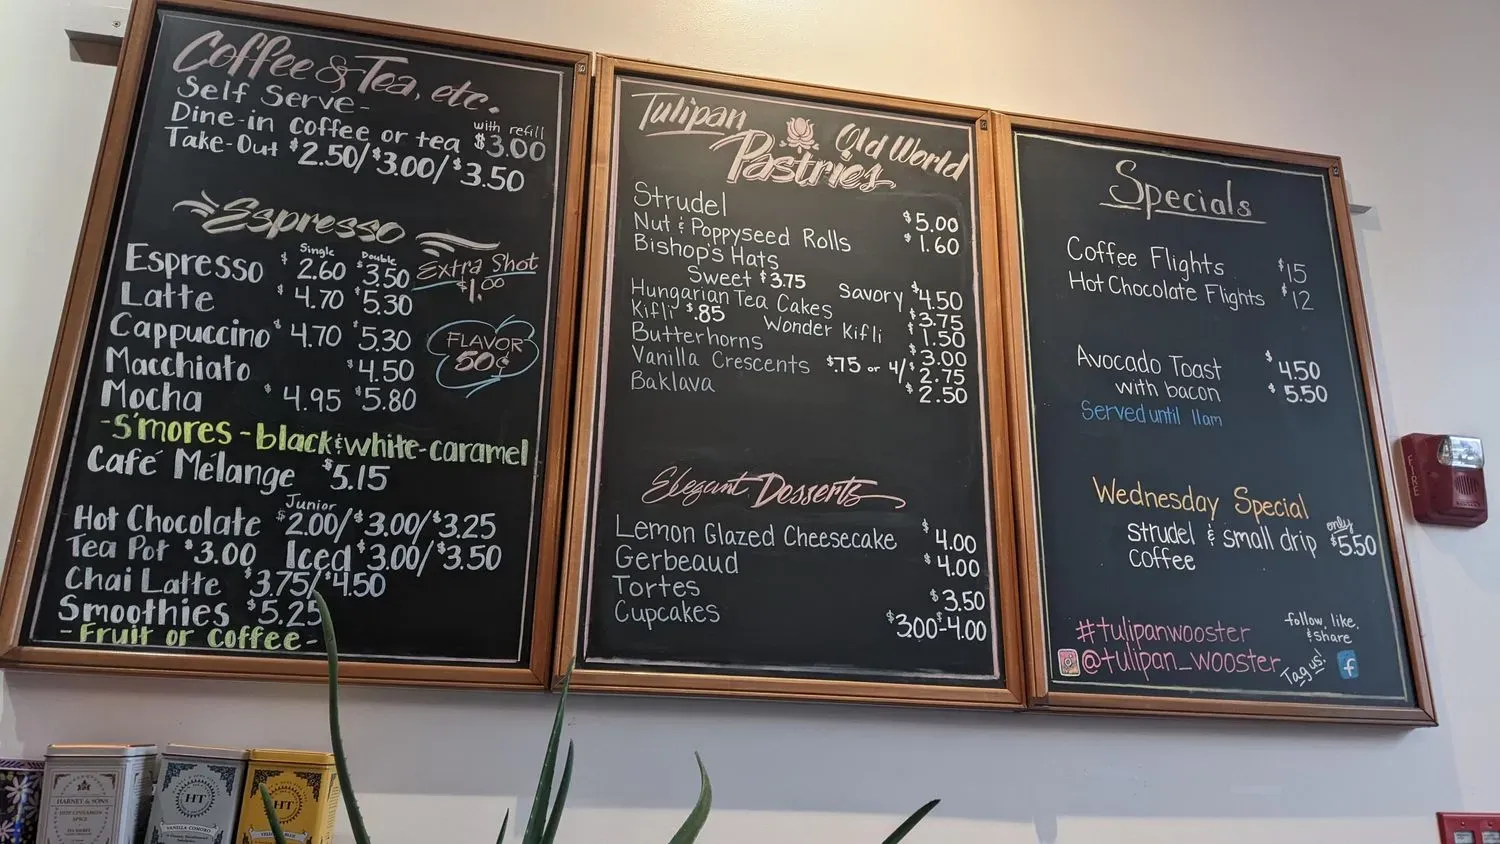 Coffee & Tea, etc.
Self Serve-
Dine-in coffee or tea with refill $3.00
Take-Out $2.50/$3.00/$3.50
Espresso
Single Double
Espresso $2.60 $3.50
Extra Shot
$1.00
Latte $4.70 $5.30
Cappuccino $4.70 $5.30
FLAVOR
50¢
Macchiato $4.50
Mocha $4.95 $5.80
-S'mores-black & white-caramel
Café Mélange $5.15
Junior
Hot Chocolate $2.00/$3.00/$3.25
Tea Pot $3.00 Iced $3.00/$3.50
Chai Latte $3.75/$4.50
Smoothies $5.25
-Fruit or Coffee-
Tulipan Old World
Pastries
Strudel $5.00
Nut & Poppyseed Rolls $1.60
Bishop's Hats
Sweet $3.75 Savory $4.50
Hungarian Tea Cakes $3.75
Kifli $.85 Wonder Kifli $1.50
Butterhorns $3.00
Vanilla Crescents $.75 or 4/$2.75
Baklava $2.50
Elegant Desserts
Lemon Glazed Cheesecake $4.00
Gerbeaud $4.00
Tortes $3.50
Cupcakes $3.00-$4.00
Specials
Coffee Flights $15
Hot Chocolate Flights $12
Avocado Toast $4.50
with bacon $5.50
Served until 11am
Wednesday Special
Strudel & small drip only $5.50
coffee
#tulipanwooster
follow, like,
& share
@tulipan_wooster
Tag us!
f
FIRE
HARNEY & SONS
HOT CINNAMON
SPICE
HT
VANILLA COMORO
HT